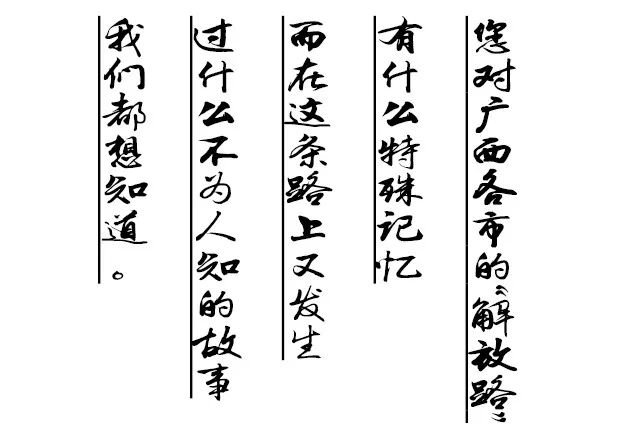 您对广西各市的“解放路”
有什么特殊记忆
而在这条路上又发生
过什么不为人知的故事
我们都想知道。